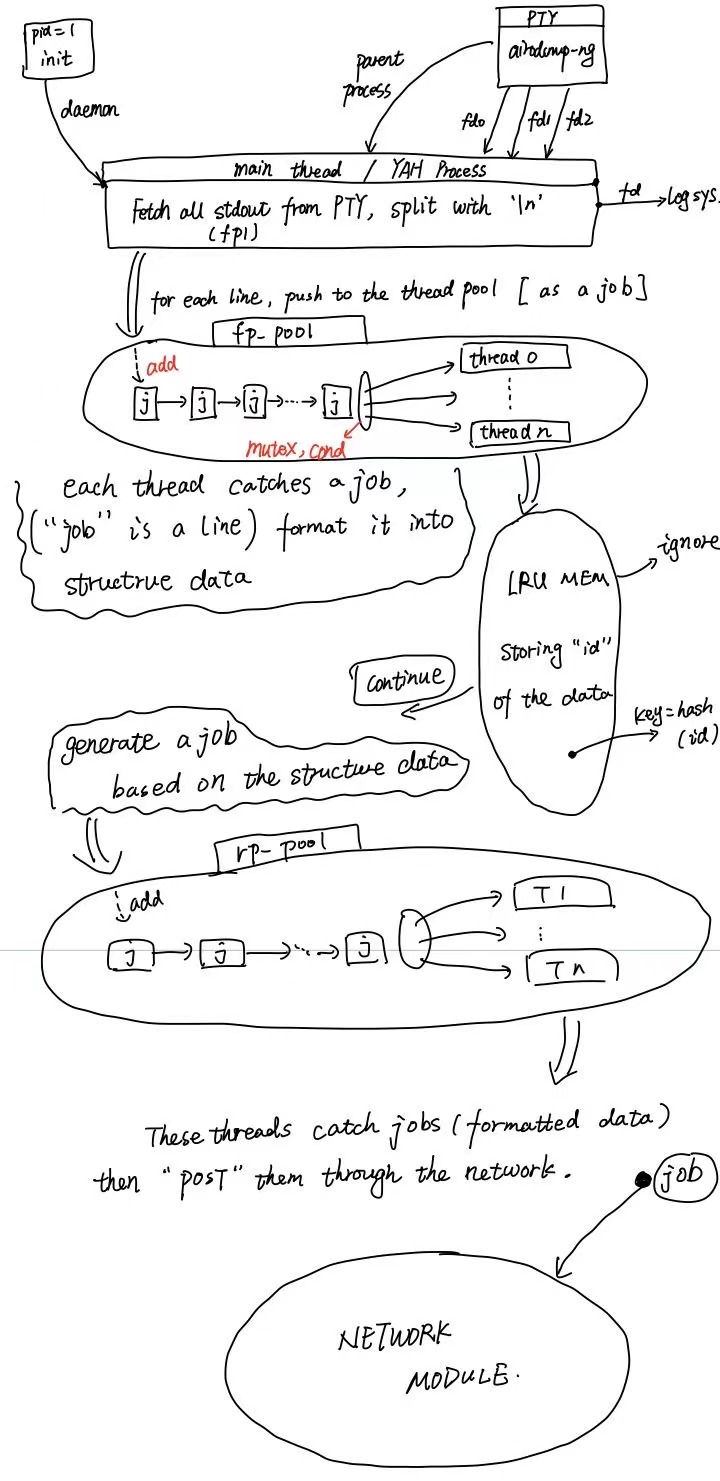 pid=1
init
daemon
parent
process
PTY
airodump-ng
fd0
fd1
fd2
main thread / YAH Process
Fetch all stdout from PTY, split with '\n'
(fp1)
fd
log sys.
for each line, push to the thread pool [as a job]
fp-pool
add
j
j
j
...
j
mutex, cond
thread 0
thread n
each thread catches a job,
("job" is a line) format it into
structrue data
LRU MEM
storing "id"
of the data
ignore
key=hash
(id)
continue
generate a job
based on the structure data
rp-pool
add
j
j
...
j
T1
Tn
These threads catch jobs (formatted data)
then "POST" them through the network.
job
NETWORK
MODULE.